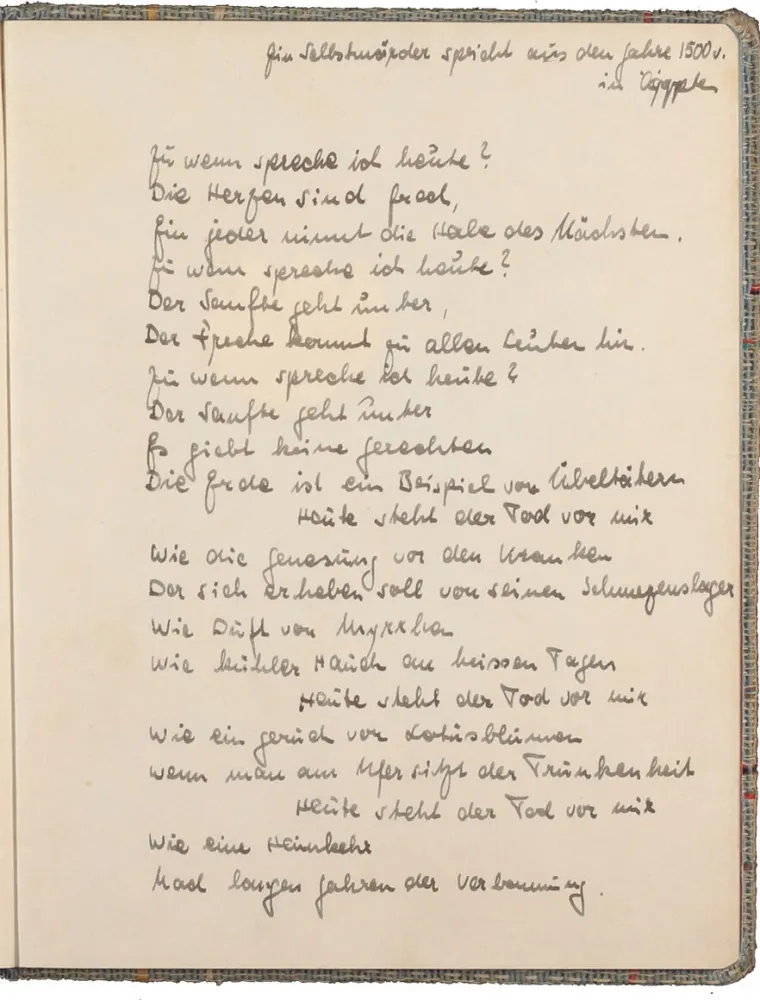 Ein Selbstmörder spricht aus den Jahre 1500 v.
in Ägypten
Zu wenn spreche ich heute?
Die Herzen sind frech,
Ein jeder nimmt die Habe des Nächsten.
Zu wem spreche ich heute?
Der Sanfte geht unter,
Der Freche kommt zu allen Leuten hin.
Zu wenn spreche ich heute?
Der Sanfte geht unter
Es giebt keine gerechten
Die Erde ist ein Beispiel von Übeltätern
Heute steht der Tod vor mir
Wie die Genesung vor den Kranken
Der sich erheben soll von seinen Schmezenslager
Wie Duft von Myrrhen
Wie kühler Hauch an heissen Tagen
Heute steht der Tod vor mir
Wie ein geruch von Lotusblumen
Wenn man am Ufer sitzt der Trunkenheit
Heute steht der Tod vor mir
Wie eine Heimkehr
Nach langen Jahren der Verbannung.